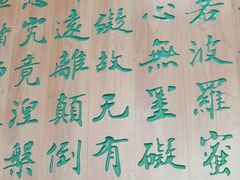 若波羅蜜
心無罣礙
礙故无有
遠離顛倒
究竟涅槃